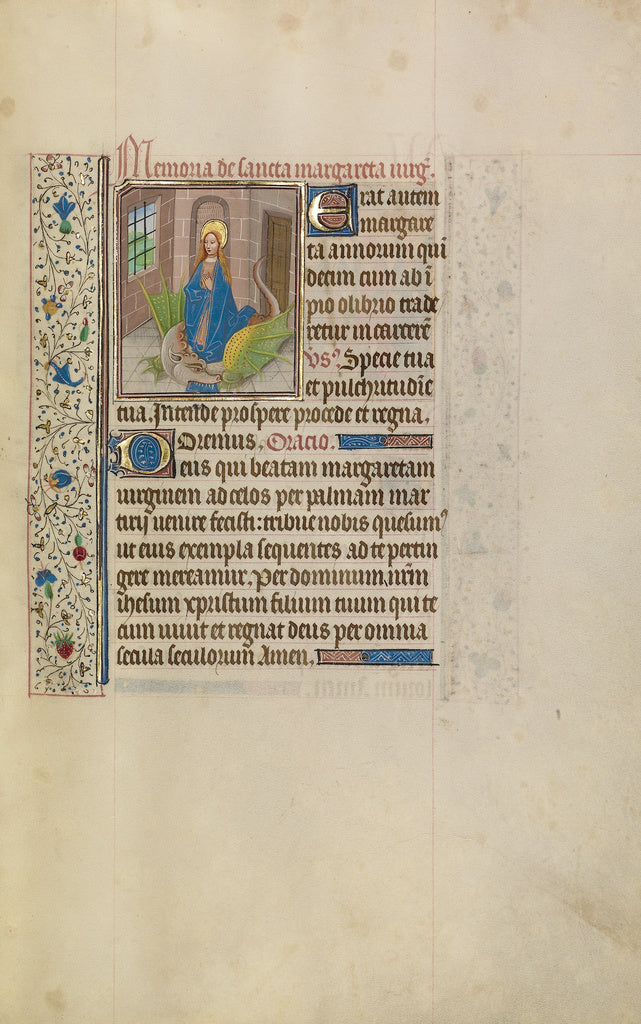 Memoria de sancta margareta uirg̃.
Erat autem
margare
ta annorum qui
decim cum ab i
pio olibrio trade
retur in carcerē
vs᾽. Specie tua
et pulchritudīe
tua. Intende prospere procede et regna.
Oremus. Oracio.
Deus qui beatam margaretam
uirginem ad celos per palmam mar
tirij uenire fecisti: tribue nobis quesum᾽
ut eius exempla sequentes ad te pertin
gere mereamur. Per dominum. nr̄m
ihesum xpristum filium tuum qui te
cum uiuit et regnat deus per omnia
secula seculorum Amen.